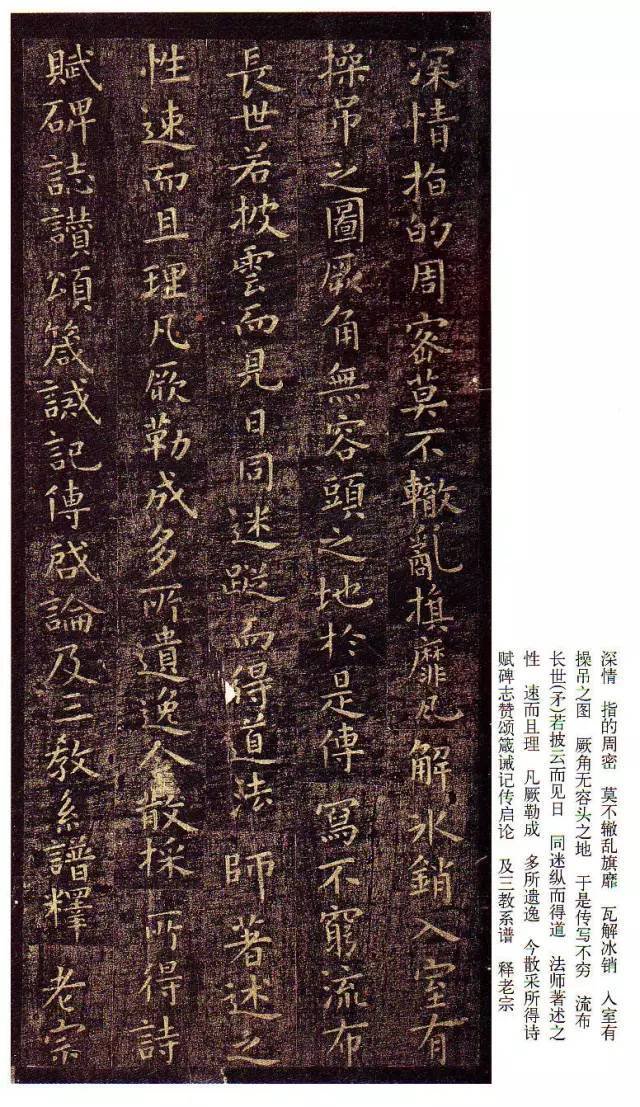 深情指的周密莫不轍亂旗靡瓦解氷銷入室有
操吊之圖厥角無容頭之地於是傳寫不窮流布
長世若披雲而見日同迷蹤而得道法師著述之
性速而且理凡厥勒成多所遺逸今散採所得詩
賦碑誌讃頌箴誡記傳啓論及三教系譜釋老宗
深情　指的周密　莫不辙乱旗靡　瓦解冰销　人室有
操吊之图　厥角无容头之地　于是传写不穷　流布
长世(矛)若披云而见日　同迷纵而得道　法师著述之
性　速而且理　凡厥勒成　多所遗逸　今散采所得诗
赋碑志赞颂箴诫记传启论　及三教系谱　释老宗